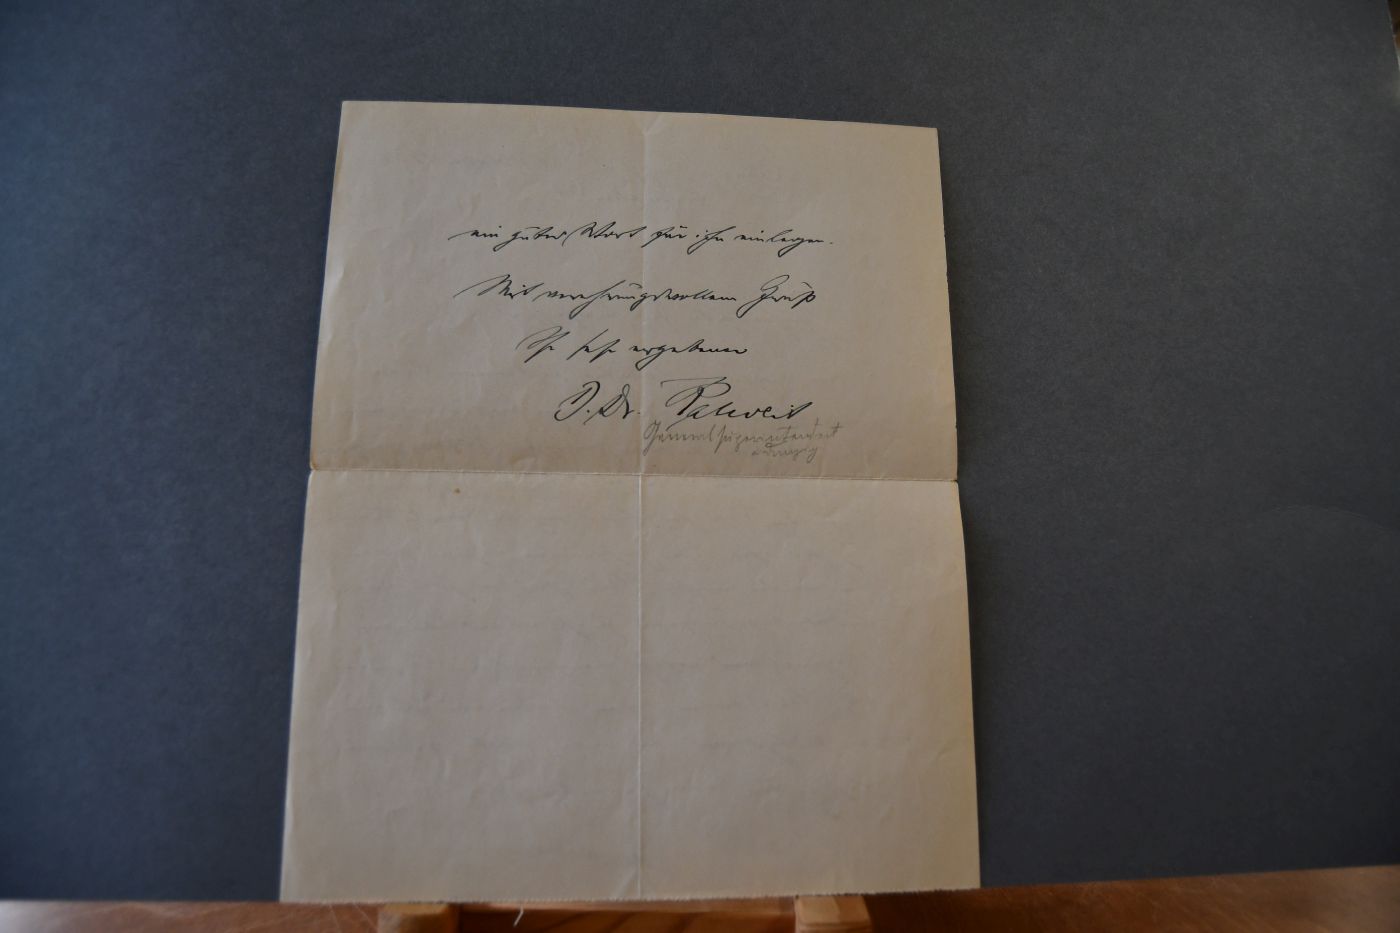 ein gutes Wort für ihn einlegen.
Mit verehrungsvollem Gruß
Ihr sehr ergebener
D. Dr. Kalweit
Generalsuperintendent
Danzig